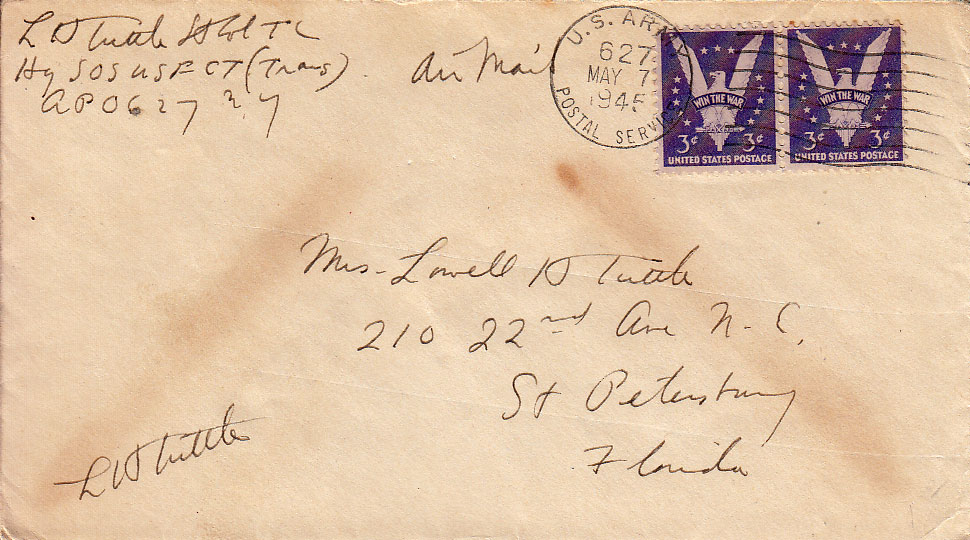 L H Tuttle Lt Col T C
Hq SOS USF CT (Trans)
APO 627 N.Y
Air Mail
U.S. ARMY
627
MAY 7
1945
POSTAL SERVICE
WIN THE WAR
3¢ 3¢
UNITED STATES POSTAGE
WIN THE WAR
3¢ 3¢
UNITED STATES POSTAGE
Mrs- Lowell H Tuttle
210 22nd Ave N-E,
St Petersburg
Florida
L H Tuttle